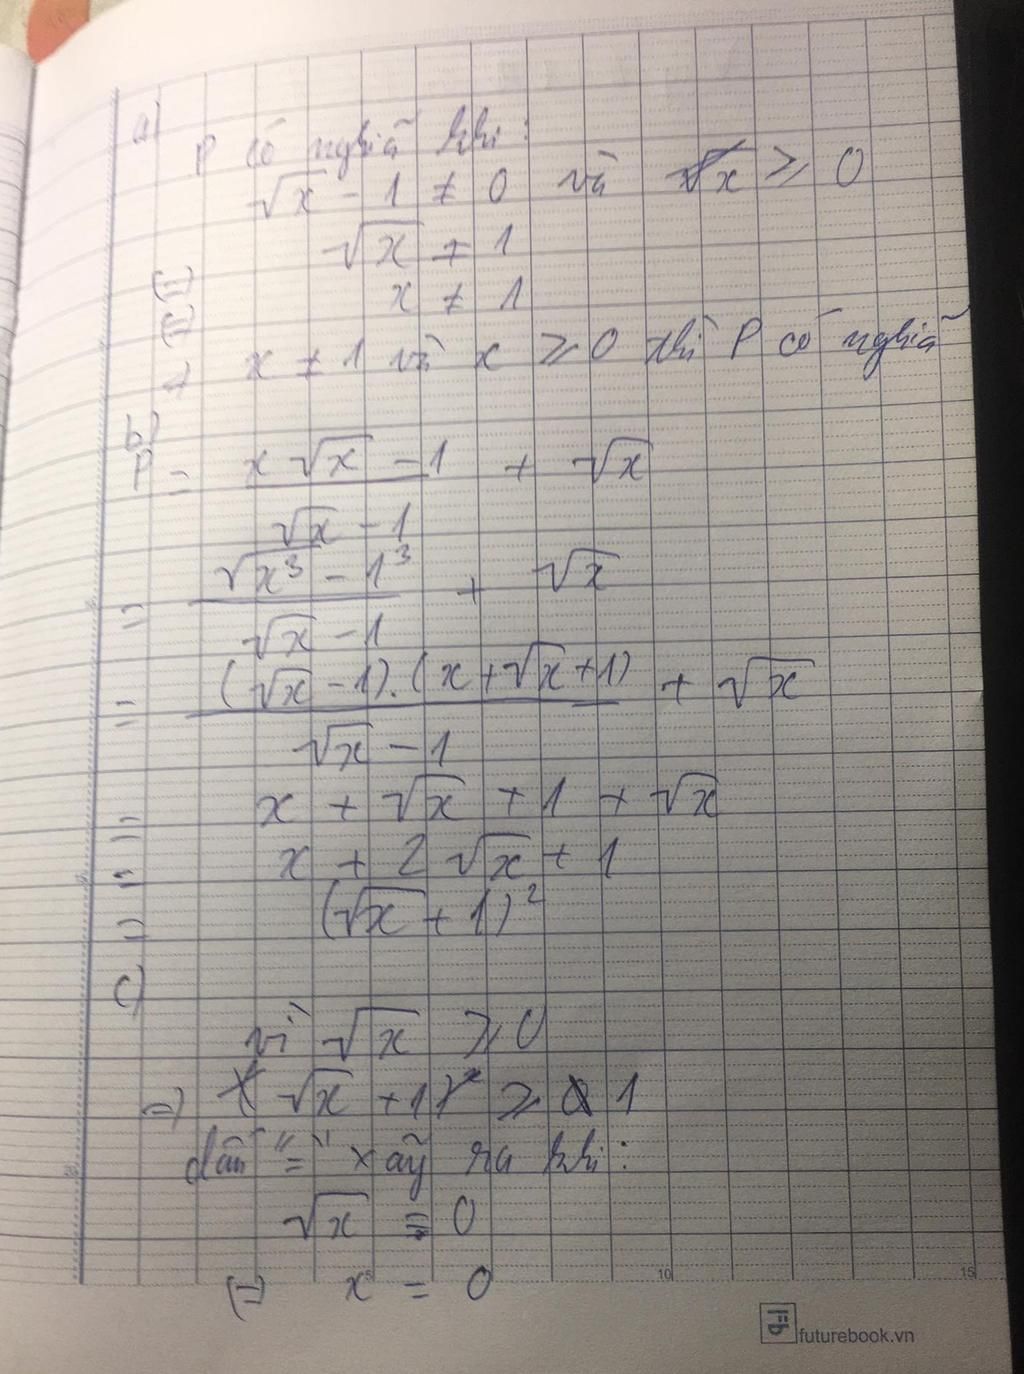 a)
P có nghĩa khi:
√x - 1 ≠ 0 và √x ≥ 0
(=) √x ≠ 1
(=) x ≠ 1
→ x ≠ 1 và x ≥ 0 thì P có nghĩa
b)
P = (x√x - 1)/(√x - 1) + √x
= (√x³ - 1³)/(√x - 1) + √x
= (√x - 1).(x + √x + 1)/(√x - 1) + √x
= x + √x + 1 + √x
= x + 2√x + 1
= (√x + 1)²
c)
vì √x ≥ 0
=) √x + 1 ≥ 1
dấu "=" xảy ra khi:
√x = 0
(=) x = 0
5 10 15
futurebook.vn